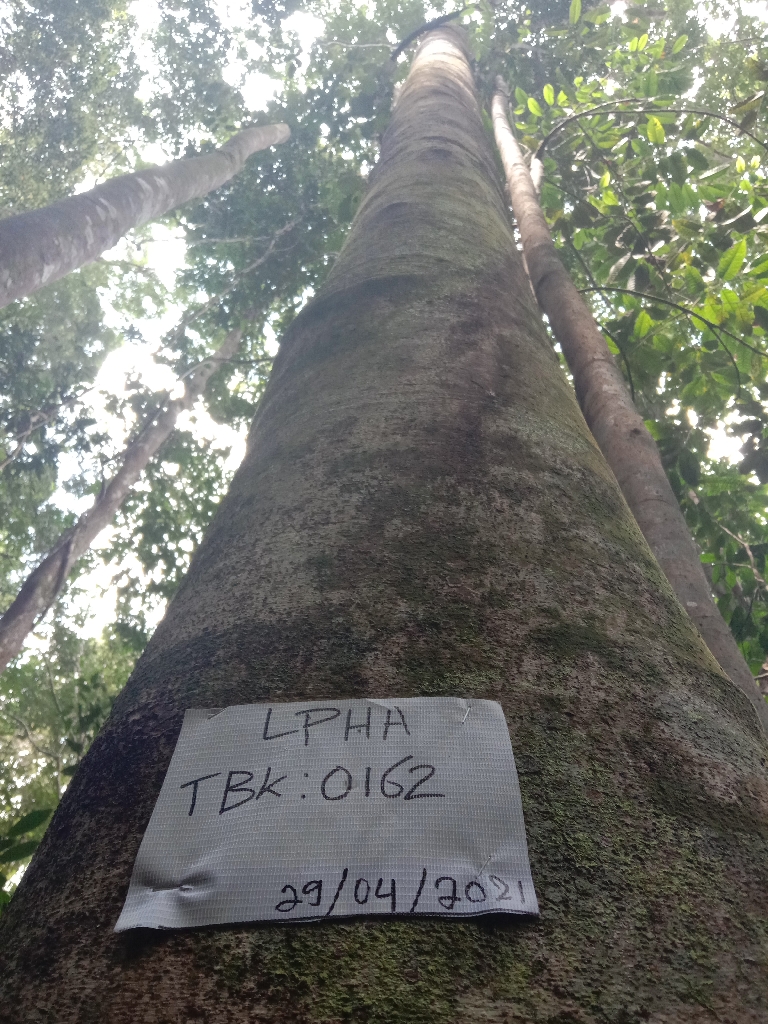 LPHA
TBK:0162
29/04/2021